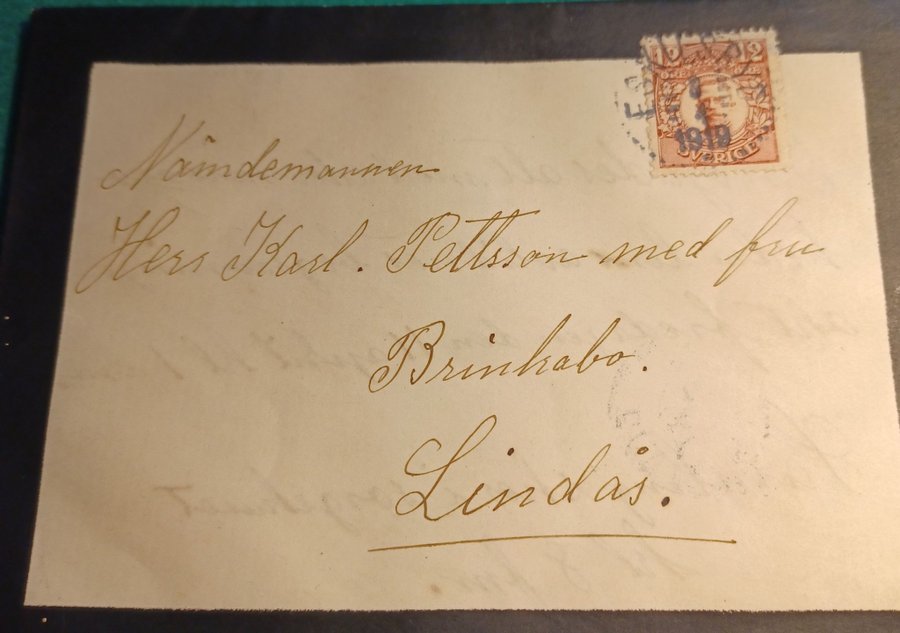 12
ÖRE
SVERIGE
1919
Nämdemannen
Herr Karl. Pettsson med fru
Brinkabo.
Lindås.